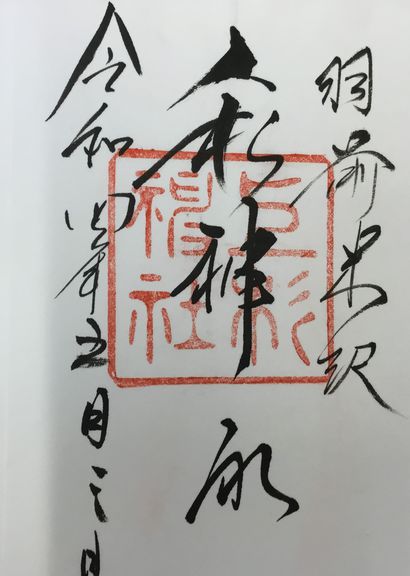 羽前米沢
上杉神社
令和四年五月三日
上杉
神社